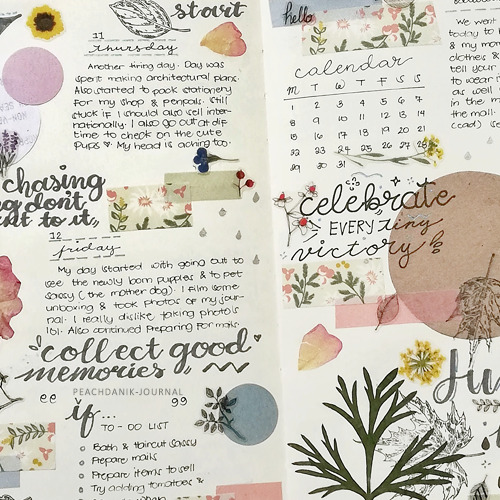 start
11
thursday
Another tiring day. Day was
spent making architectural plans.
Also started to pack stationery
for my shop & penpals. Still
stuck if I should also sell inter-
nationally. I also go out at dif
time to check on the cute
pups. My head is aching too.
chasing
don't
to it,,
12
friday
My day started with going out to
see the newly born puppies & to pet
Sassy (the mother dog). I film some
unboxing & took photos of my jour-
nal. I really dislike taking photos
lol. Also continued preparing for mails.
collect good
memories
PEACHDANIK-JOURNAL
if...
TO-DO LIST
Bath & haircut Sassy
Prepare mails
Prepare items to sell
Try adding tomatoes &
hello
calendar
M T W T F S S
1 2 3 4 5 6 7
8 9 10 11 12 13 14
15 16 17 18 19 20 21
22 23 24 25 26 27 28
29 30 31
We went
today to
& my mo
clothes &
tell your
to wear
as well
in the m
the mall.
(cad) se
celebrate
EVERY tiny
victory!
Ju